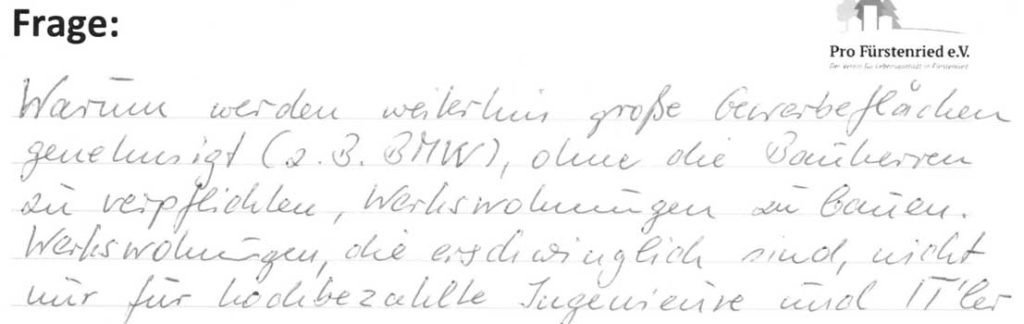 Frage:
Pro Fürstenried e.V.
Der Verein für Lebensqualität in Fürstenried
Warum werden weiterhin große Gewerbeflächen
genehmigt (z.B. BMW), ohne die Bauherren
zu verpflichten, Werkswohnungen zu bauen.
Werkswohnungen, die erschwinglich sind, nicht
nur für hochbezahlte Ingenieure und IT'ler